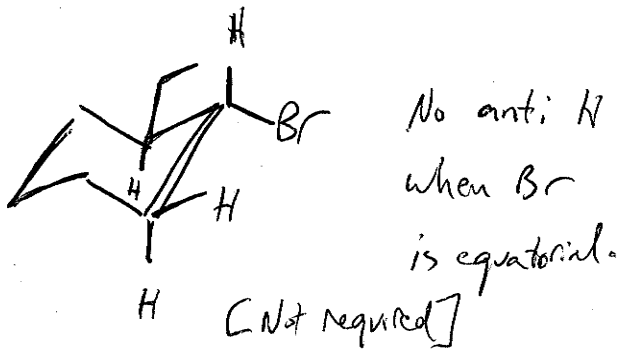 H
Br
No anti H
when Br
is equatorial.
H
H
H
[Not required]